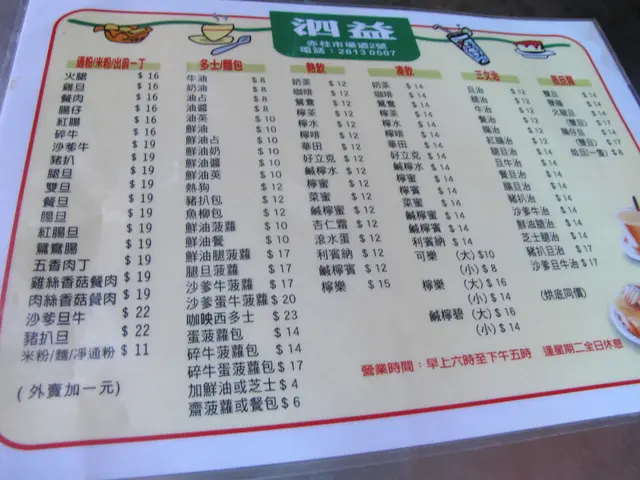 泗益
赤柱市場道2號
電話：2813 0507
通粉/米粉/出前一丁
火腿 $ 16
雞旦 $ 16
餐肉 $ 16
腸仔 $ 16
紅腸 $ 16
碎牛 $ 16
沙爹牛 $ 19
豬扒 $ 19
腿旦 $ 19
雙旦 $ 19
餐旦 $ 19
腸旦 $ 19
紅腸旦 $ 19
鴛鴦腸 $ 19
五香肉丁 $ 19
雞絲香菇餐肉 $ 19
肉絲香菇餐肉 $ 19
沙爹旦牛 $ 22
豬扒旦 $ 22
米粉/麵/淨通粉 $ 11
(外賣加一元)
多士/麵包
牛油 $ 8
奶油 $ 8
油占 $ 8
油醬 $ 8
油英 $ 10
鮮油 $ 10
鮮油占 $ 10
鮮油奶 $ 10
鮮油醬 $ 10
鮮油英 $ 10
熱狗 $ 12
豬扒包 $ 12
魚柳包 $ 12
鮮油菠蘿 $ 10
鮮油餐 $ 10
鮮油腿菠蘿 $ 17
腿旦菠蘿 $ 17
沙爹牛菠蘿 $ 17
沙爹蛋牛菠蘿 $ 20
咖央西多士 $ 23
蛋菠蘿包 $ 14
碎牛菠蘿包 $ 14
碎牛蛋菠蘿包 $ 17
加鮮油或芝士 $ 4
齋菠蘿或餐包 $ 6
熱飲
奶茶 $ 12
咖啡 $ 12
鴛鴦 $ 12
檸茶 $ 12
檸水 $ 12
檸啡 $ 12
華田 $ 12
好立克 $ 12
鹹檸水 $ 12
檸蜜 $ 12
菜蜜 $ 12
鹹檸蜜 $ 12
杏仁霜 $ 12
滾水蛋 $ 12
利賓納 $ 12
鹹檸賓 $ 12
檸樂 $ 15
凍飲
奶茶 $ 14
咖啡 $ 14
鴛鴦 $ 14
檸茶 $ 14
檸水 $ 14
檸啡 $ 14
華田 $ 14
好立克 $ 14
鹹檸水 $ 14
檸蜜 $ 14
檸賓 $ 14
菜蜜 $ 14
鹹檸蜜 $ 14
鹹檸賓 $ 14
利賓納 $ 14
可樂 (大) $10
(小) $ 8
檸樂 (大) $ 16
(小) $ 14
鹹檸碧 (大) $ 16
(小) $ 14
三文治
旦治 $ 12
腿治 $ 12
餐治 $ 12
腸治 $ 12
紅腸治 $ 12
腿旦治 $ 14
旦牛治 $ 14
餐旦治 $ 14
腸旦治 $ 14
豬扒治 $ 14
沙爹牛治 $ 14
鮮油腿治 $ 14
芝士腿治 $ 14
豬扒旦治 $ 17
沙爹旦牛治 $ 17
(烘底同價)
雙旦 $ 14
雙腸 $ 14
火腿旦 $ 14
餐旦 $ 14
(雙旦) $ 17
腸仔旦 $ 14
(雙旦) $ 17
焓旦(一隻) $ 6
營業時間：早上六時至下午五時 逢星期二全日休息